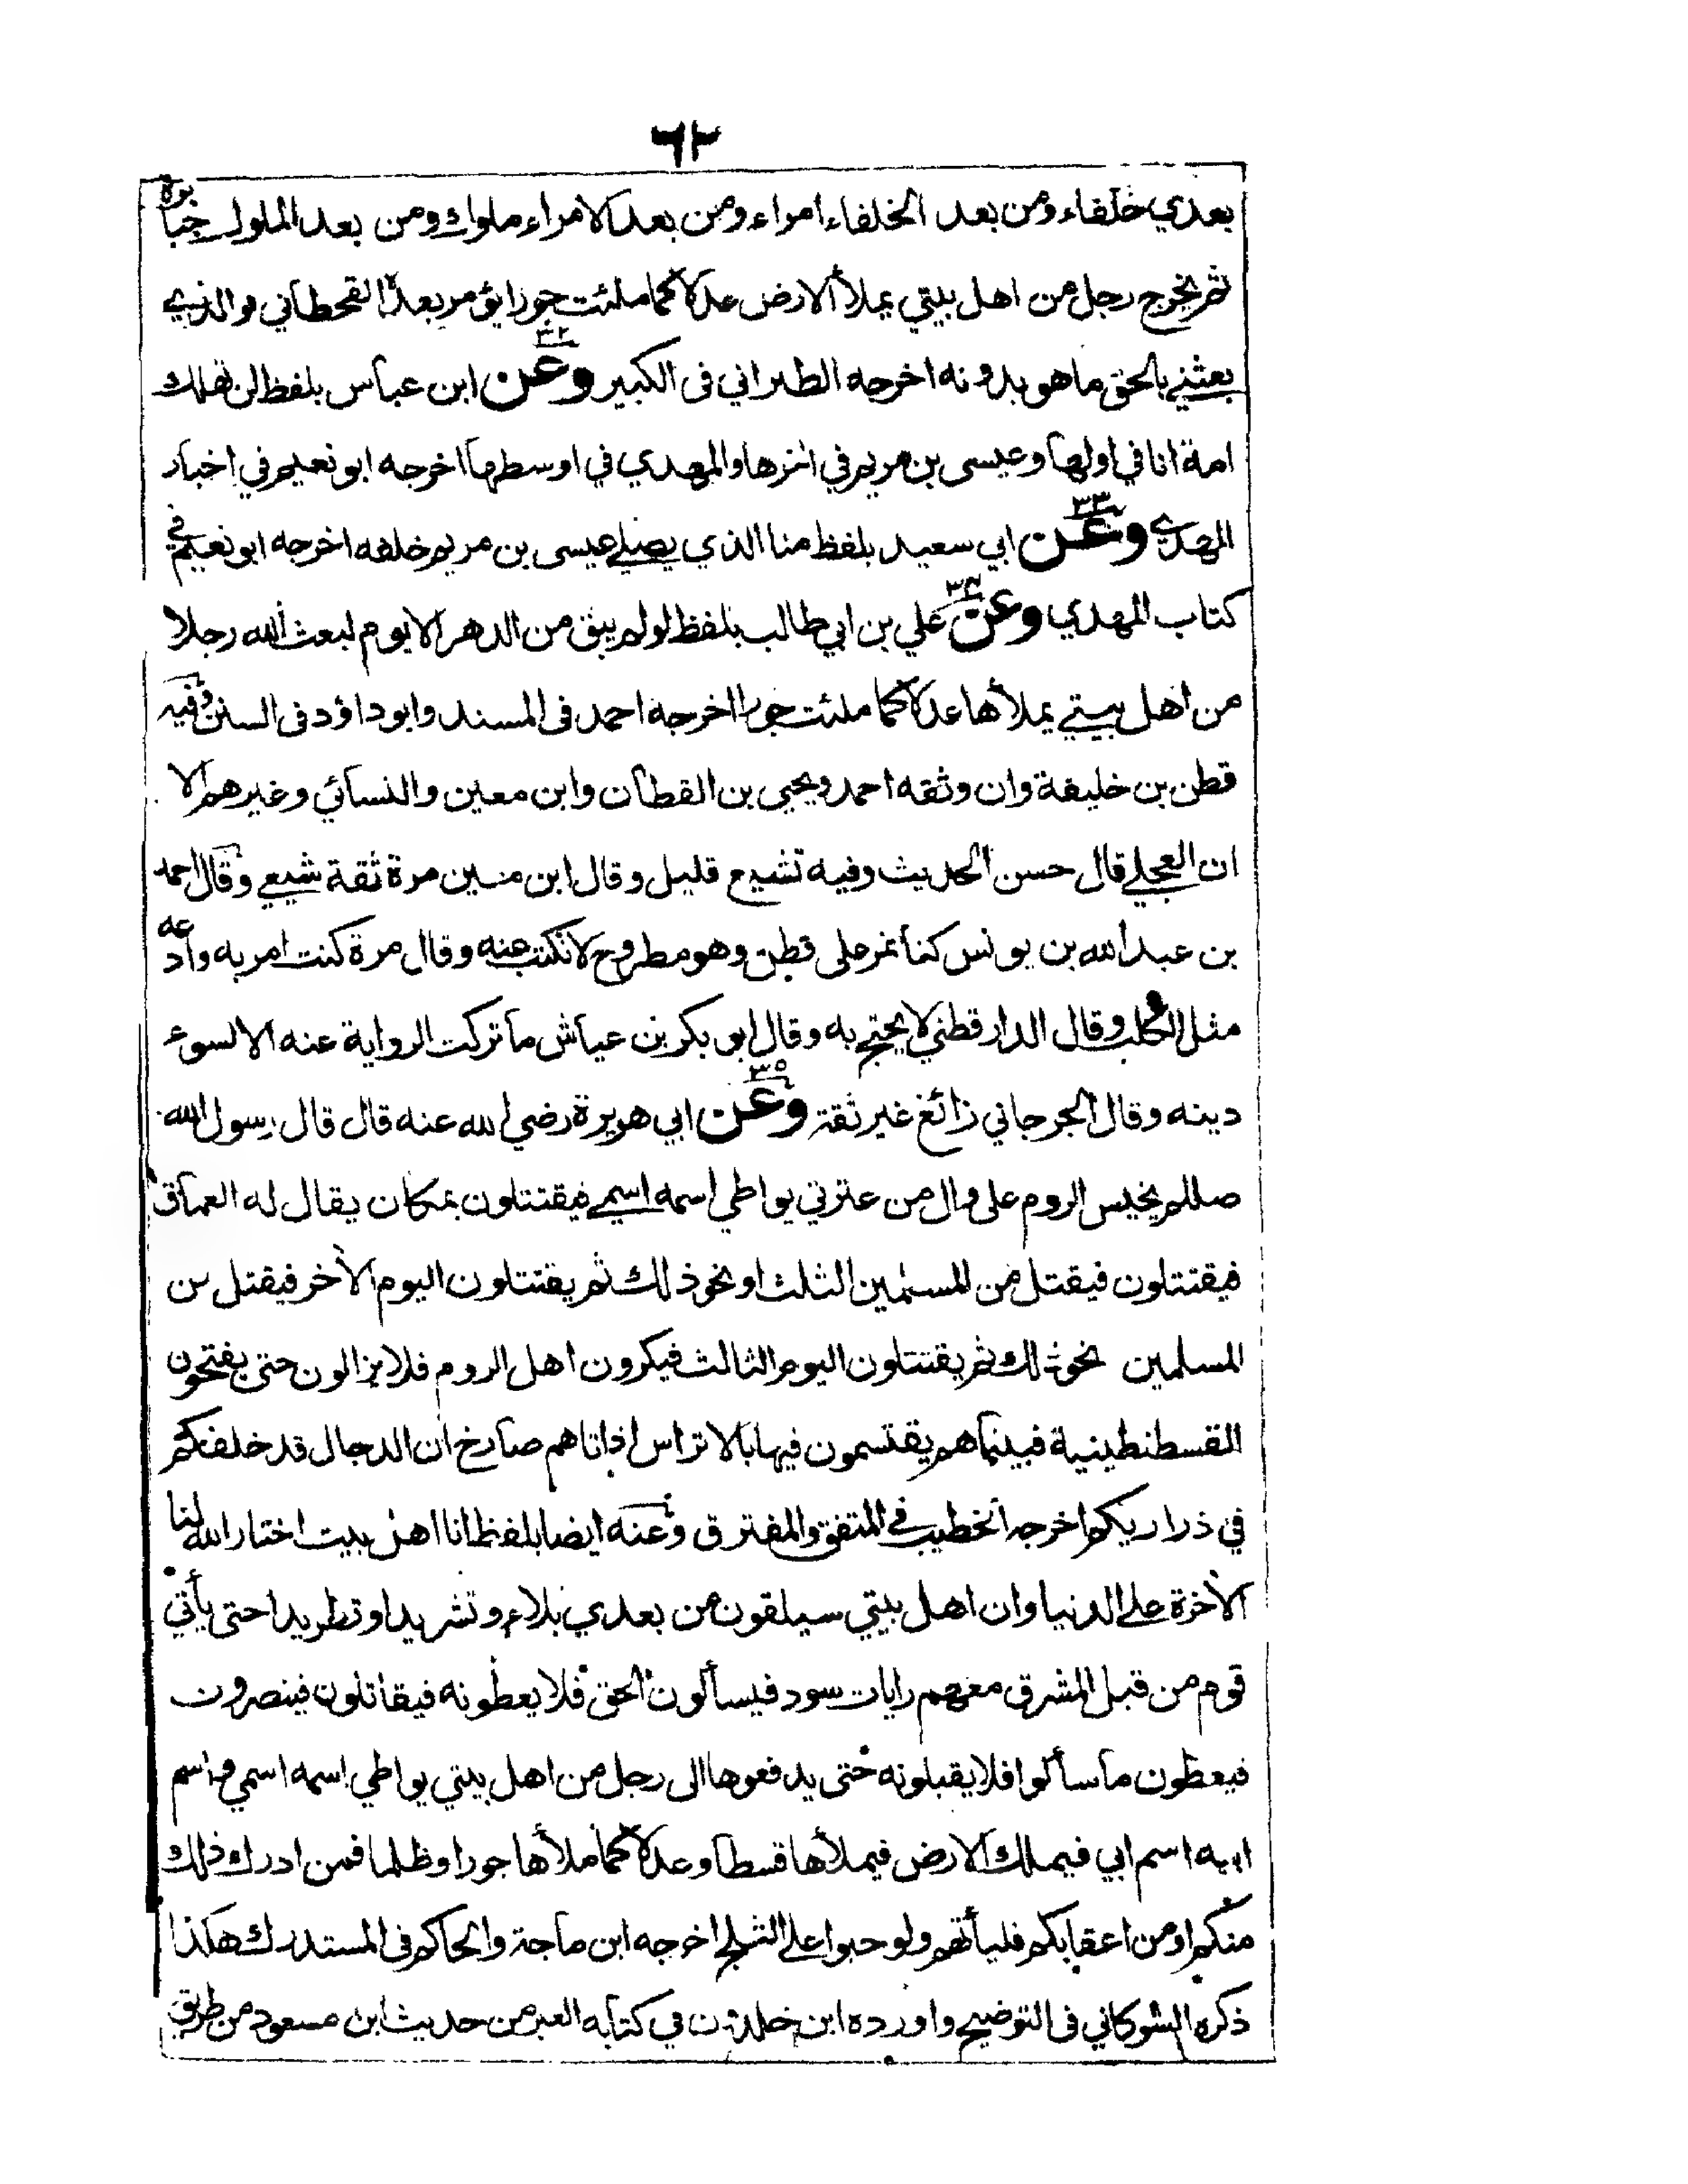 ٦٢
بعدي خلفاء ومن بعد الخلفاء امراء ومن بعد الامراء ملوك ومن بعد الملوك جبابرة
ثم يخرج رجل من اهل بيتي يملأ الارض عدلا كما ملئت جورا يؤمر بعده القحطاني فوالذي
بعثني بالحق ما هو بدونه اخرجه الطبراني فى الكبير وعن ٣٢ ابن عباس بلفظ لن تهلك
امة انا في اولها وعيسى بن مريم في اخرها والمهدي في اوسطها اخرجه ابو نعيم في اخبار
المهدي وعن ٣٣ ابي سعيد بلفظ منا الذي يصلي عيسى بن مريم خلفه اخرجه ابو نعيم في
كتاب المهدي وعن ٣٤ علي بن ابي طالب بلفظ لو لم يبق من الدهر الا يوم لبعث الله رجلا
من اهل بيتي يملأها عدلا كما ملئت جورا اخرجه احمد فى المسند وابو داؤد فى السنن وفيه
قطن بن خليفة وان وثقه احمد ويحيي بن القطان وابن معين والنسائي وغيرهم الا
ان العجلي قال حسن الحديث وفيه تشيع قليل وقال ابن معين مرة ثقة شيعي وقال احمد
بن عبد الله بن يونس كنا نمر على قطن وهو مطروح لا نكتب عنه وقال مرة كنت امر به وادعه
مثل الكلب وقال الدارقطني لا يحتج به وقال ابو بكر بن عياش ما تركت الرواية عنه الا لسوء
دينه وقال الجرجاني زائغ غير ثقة وعن ٣٥ ابي هريرة رضي الله عنه قال قال رسول الله
صللم يخيس الروم على وال من عترتي يواطي اسمه اسمي فيقتتلون بمكان يقال له العماق
فيقتتلون فيقتل من المسلمين الثلث او نحو ذلك ثم يقتتلون اليوم الأخر فيقتل من
المسلمين نحو ذلك ثم يقتتلون اليوم الثالث فيكرون اهل الروم فلا يزالون حتى يفتحون
القسطنطينية فبينما هم يقتسمون فيها بالاتراس اذ اتاهم صارخ ان الدجال قد خلفكم
في ذراريكم اخرجه الخطيب في المتفق والمفترق وعنه ايضا بلفظ انا اهل بيت اختار الله لنا
الأخرة على الدنيا وان اهل بيتي سيلقون من بعدي بلاء وتشريدا وتطريدا حتى يأتي
قوم من قبل المشرق معهم رايات سود فيسألون الحق فلا يعطونه فيقاتلون فينصرون
فيعطون ما سألوا فلا يقبلونه حتى يدفعوها الى رجل من اهل بيتي يواطي اسمه اسمي واسم
ابيه اسم ابي فيملك الارض فيملأها قسطا وعدلا كما ملأها جورا وظلما فمن ادرك ذلك
منكم او من اعقابكم فليأتهم ولو حبوا على الثلج اخرجه ابن ماجة والحاكم فى المستدرك هكذا
ذكره الشوكاني فى التوضيح واورده ابن خلدون في كتابه العبر من حديث ابن مسعود من طريق